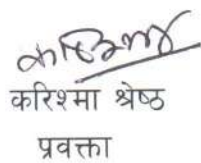 करिश्मा श्रेष्ठ
प्रवक्ता